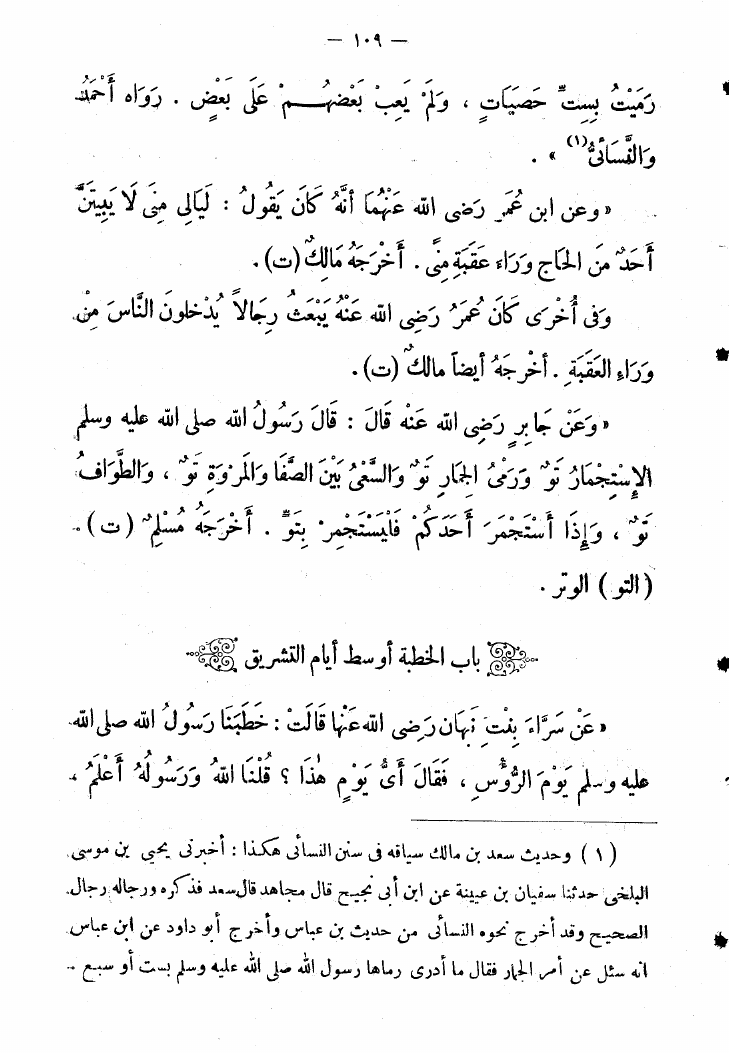 — ١٠٩ —
رَمَيْتُ بِسِتِّ حَصَيَاتٍ ، وَلَمْ يَعِبْ بَعْضُهُمْ عَلَى بَعْضٍ . رَوَاه أَحْمَدُ
وَالنَّسَائِيُّ(١) » .
« وعن ابن عُمَرَ رَضِى الله عَنْهُمَا أَنَّهُ كَانَ يَقُولُ : لَيَالِى مِنًى لَا يَبِيتَنَّ
أَحَدٌ مِنَ الحَاجِ وَرَاءَ عَقَبَةِ مِنًى . أَخْرَجَهُ مَالِكٌ (ت) .
وَفى أُخْرَى كَانَ عُمَرُ رَضِى الله عَنْهُ يَبْعَثُ رِجَالاً يُدْخِلونَ النَّاسَ مِنْ
وَرَاءِ العَقَبَةِ . أخْرجَهُ أيضاً مالكٌ (ت) .
« وَعَنْ جَابِرٍ رَضِى الله عَنْه قَالَ : قَالَ رَسُولُ الله صلى الله عليه وسلم
الإِسْتِجْمَارُ تَوٌّ وَرَمْىُ الجِمَارِ تَوٌّ وَالسَّعْىُ بَيْنَ الصَّفَا وَالمَرْوَةِ تَوٌّ ، وَالطَّوَافُ
تَوٌّ ، وَإِذَا أَسْتَجْمَرَ أَحَدَكُمْ فَلْيَسْتَجْمِرْ بِتَوٍّ . أَخْرَجَهُ مُسْلِمٌ (ت) .
( التو ) الوتر .
باب الخطبة أوسط أيام التشريق
« عَنْ سَرَّاءَ بِنْتِ نَبْهَان رَضِى الله عَنْهَا قَالَتْ : خَطَبَنَا رَسُولُ الله صلى الله
عليه وسلم يَوْمَ الرُّؤُسِ ، فَقَالَ أَىُّ يَوْمٍ هٰذَا ؟ قُلْنَا اللهُ وَرَسُولُهُ أَعْلَمُ ،
( ١ ) وحديث سعد بن مالك سياقه فى سنن النسائى هكذا : أخبرنى يحيى بن موسى
البلخى حدثنا سفيان بن عيينة عن ابن أبى نجيح قال مجاهد قال سعد فذكره ورجاله رجال
الصحيح وقد أخرج نحوه النسائى من حديث بن عباس وأخرج أبو داود عن ابن عباس
انه سئل عن أمر الجمار فقال ما أدرى رماها رسول الله صلى الله عليه وسلم بست أو سبع